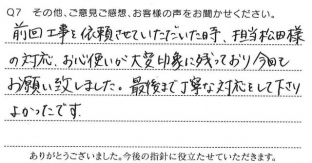 Q7 その他、ご意見ご感想、お客様の声をお聞かせください。
前回工事を依頼させていただいた時、担当松田様
の対応、お心使いが大変印象に残っており今回も
お願い致しました。最後まで丁寧な対応をして下さり
よかったです。
ありがとうございました。今後の指針に役立たせていただきます。